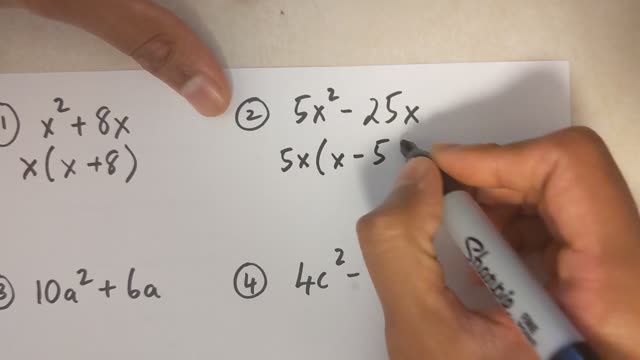 ① x² + 8x
x(x + 8)
② 5x² - 25x
5x(x - 5
③ 10a² + 6a
④ 4c² -
Sharpie